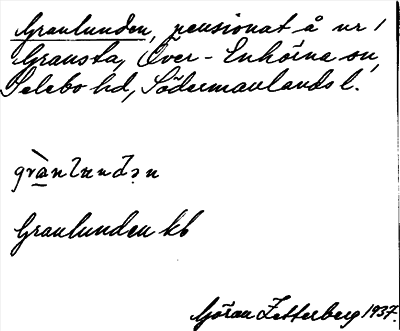 Granlunden, pensionat å nr 1
Gransta, Över-Enhörna sn,
Selebo hd, Södermanlands l.
grànlundən
Granlunden kb
Göran Zetterberg 1937.